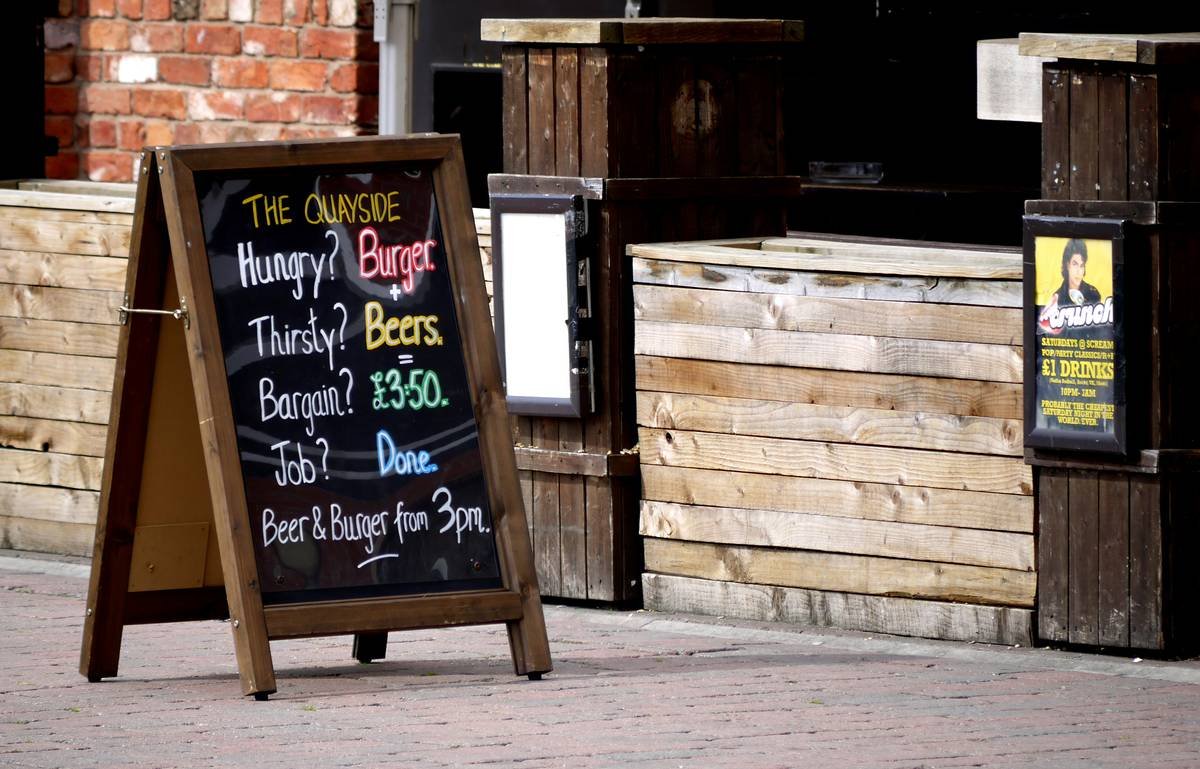 THE QUAYSIDE
Hungry? Burger.
+
Thirsty? Beers.
=
Bargain? £3.50.
Job? Done.
Beer & Burger from 3pm.
crunch
SATURDAYS @ SCREAM
POP/PARTY CLASSICS/R+B
£1 DRINKS
10PM- 3AM
PROBABLY THE CHEAPEST
SATURDAY NIGHT IN THE
WORLD. EVER.